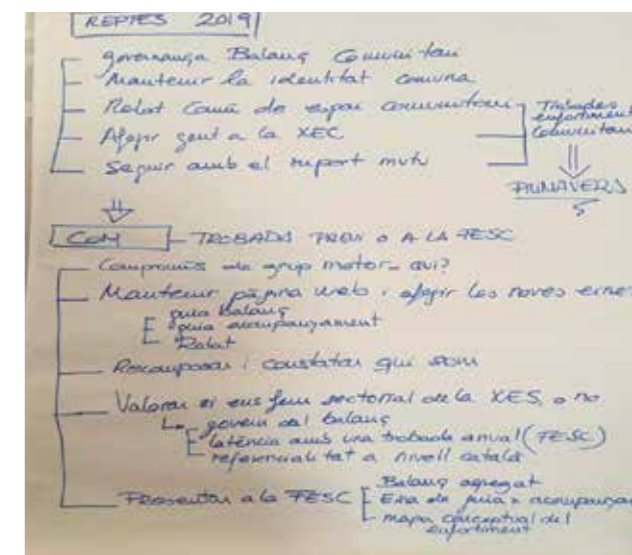 REPTES 2019
governança Balanç Comunitari
Mantenir la identitat comuna
Relat Comú de espai comunitari
Afegir gent a la XEC
Seguir amb el suport mutu
Trobades
enfortiment
Comunitari
COM
TROBADA PREVI O A LA FESC
Compromís de grup motor - qui?
Mantenir pàgina web i afegir les noves eines
guia balanç
guia acompanyament
Relat
Recomposar i constatar qui som
Valorar si ens fem sectorial de la XES, o no
govern del balanç
latència amb una trobada anual (FESC)
referencialitat a nivell català
Presentar a la FESC
Balanç agregat
Eina de guia x acompanyar
mapa conceptual del
enfortiment